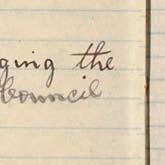 ging the
council